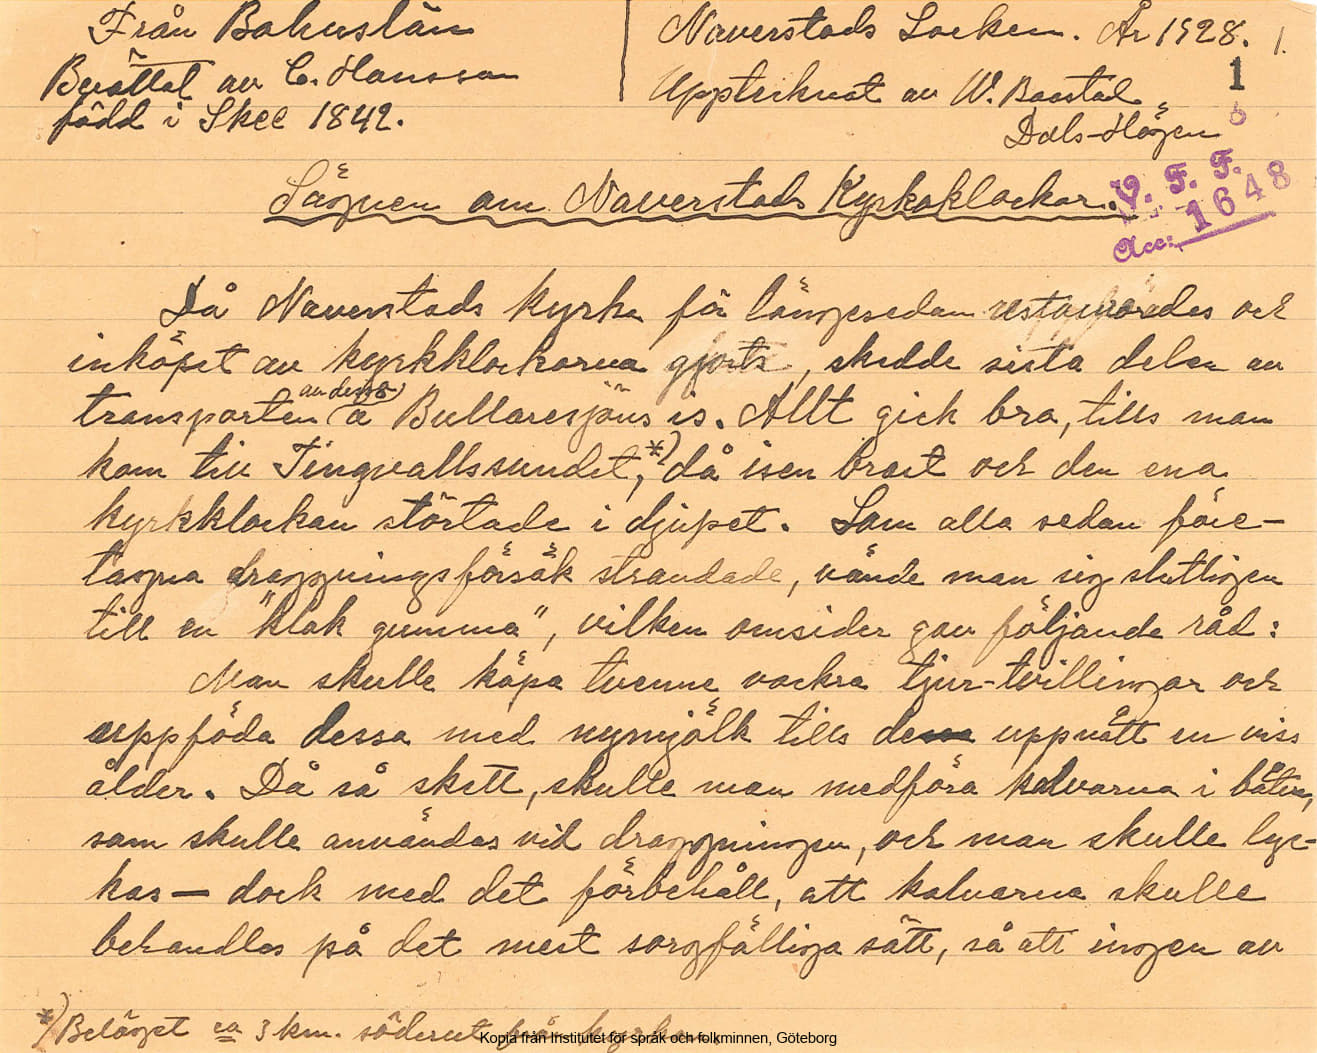 Från Bohuslän
Naverstads Socken. År 1928. 1.
Berättat av C. Hansson
1
Upptecknat av W. Baastad
född i Skee 1842.
Dals-Högen
6
Sägnen om Naverstads Kyrkoklockor.
V. F. F.
Acc: 1648
Då Naverstads kyrka för längesedan restaurerades och
inköpet av kyrkklockorna gjorts, skedde sista delen av
transporten av dessa å Bullaresjöns is. Allt gick bra, tills man
kom till Tingvallssundet,*) då isen brast och den ena
kyrkklockan störtade i djupet. Som alla sedan före-
tagna draggningsförsök strandade, vände man sig slutligen
till en "klok gumma", vilken omsider gav följande råd:
Man skulle köpa tvenne vackra tjur-tvillingar och
uppföda dessa med nymjölk tills de uppnått en viss
ålder. Då så skett, skulle man medföra kalvarna i båten,
som skulle användas vid draggningen, och man skulle lyc-
kas — dock med det förbehåll, att kalvarna skulle
behandlas på det mest sorgfälliga sätt, så att ingen av
*) Beläget ca 3 km. söderut från kyrkan.
Kopia från Institutet för språk och folkminnen, Göteborg